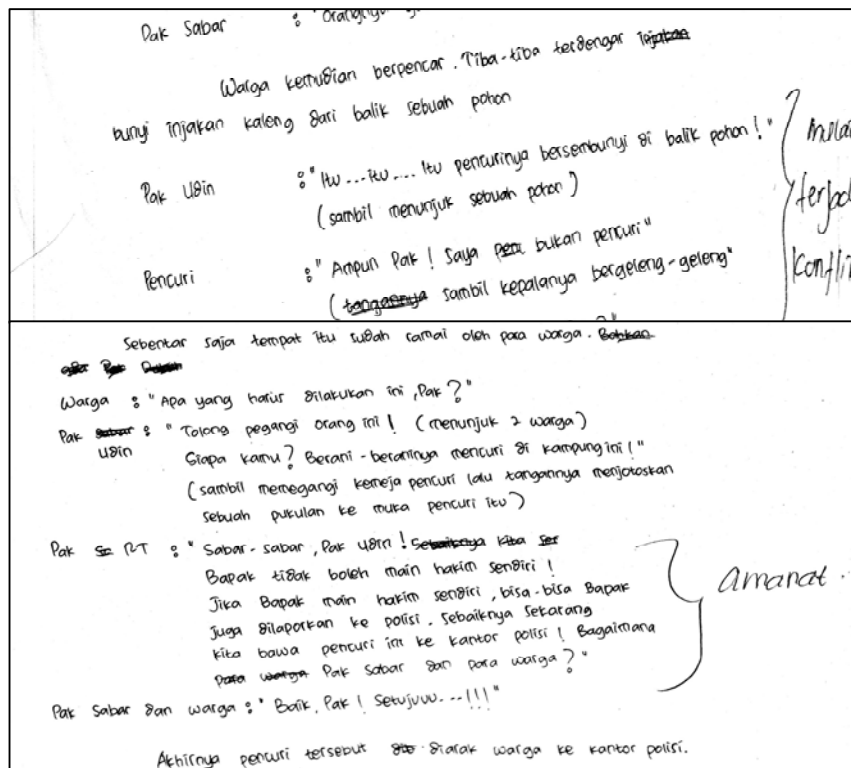 Pak Sabar : "Orangnya
Warga kemudian berpencar. Tiba-tiba terdengar injakan
bunyi injakan kaleng dari balik sebuah pohon
Pak Udin : "Itu...itu.... Itu pencurinya bersembunyi di balik pohon!"
(sambil menunjuk sebuah pohon)
Pencuri : "Ampun Pak! Saya bukan pencuri"
(tangannya sambil kepalanya bergeleng-geleng"
mulai
terjad
konfli
Sebentar saja tempat itu sudah ramai oleh para warga. Bahkan
Warga : "Apa yang harus dilakukan ini, Pak?"
Pak sabar : "Tolong pegangi orang ini! (menunjuk 2 warga)
Udin Siapa kamu? Berani-beraninya mencuri di kampung ini!"
(sambil memegangi kemeja pencuri lalu tangannya menjotoskan
sebuah pukulan ke muka pencuri itu)
Pak RT : "Sabar-sabar, Pak Udin! Sebaiknya kita
Bapak tidak boleh main hakim sendiri!
Jika Bapak main hakim sendiri, bisa-bisa Bapak
juga dilaporkan ke polisi. Sebaiknya sekarang
kita bawa pencuri ini ke kantor polisi! Bagaimana
para warga Pak Sabar dan para warga?"
amanat.
Pak Sabar dan warga : "Baik, Pak! Setujuuu...!!!"
Akhirnya pencuri tersebut diarak warga ke kantor polisi.